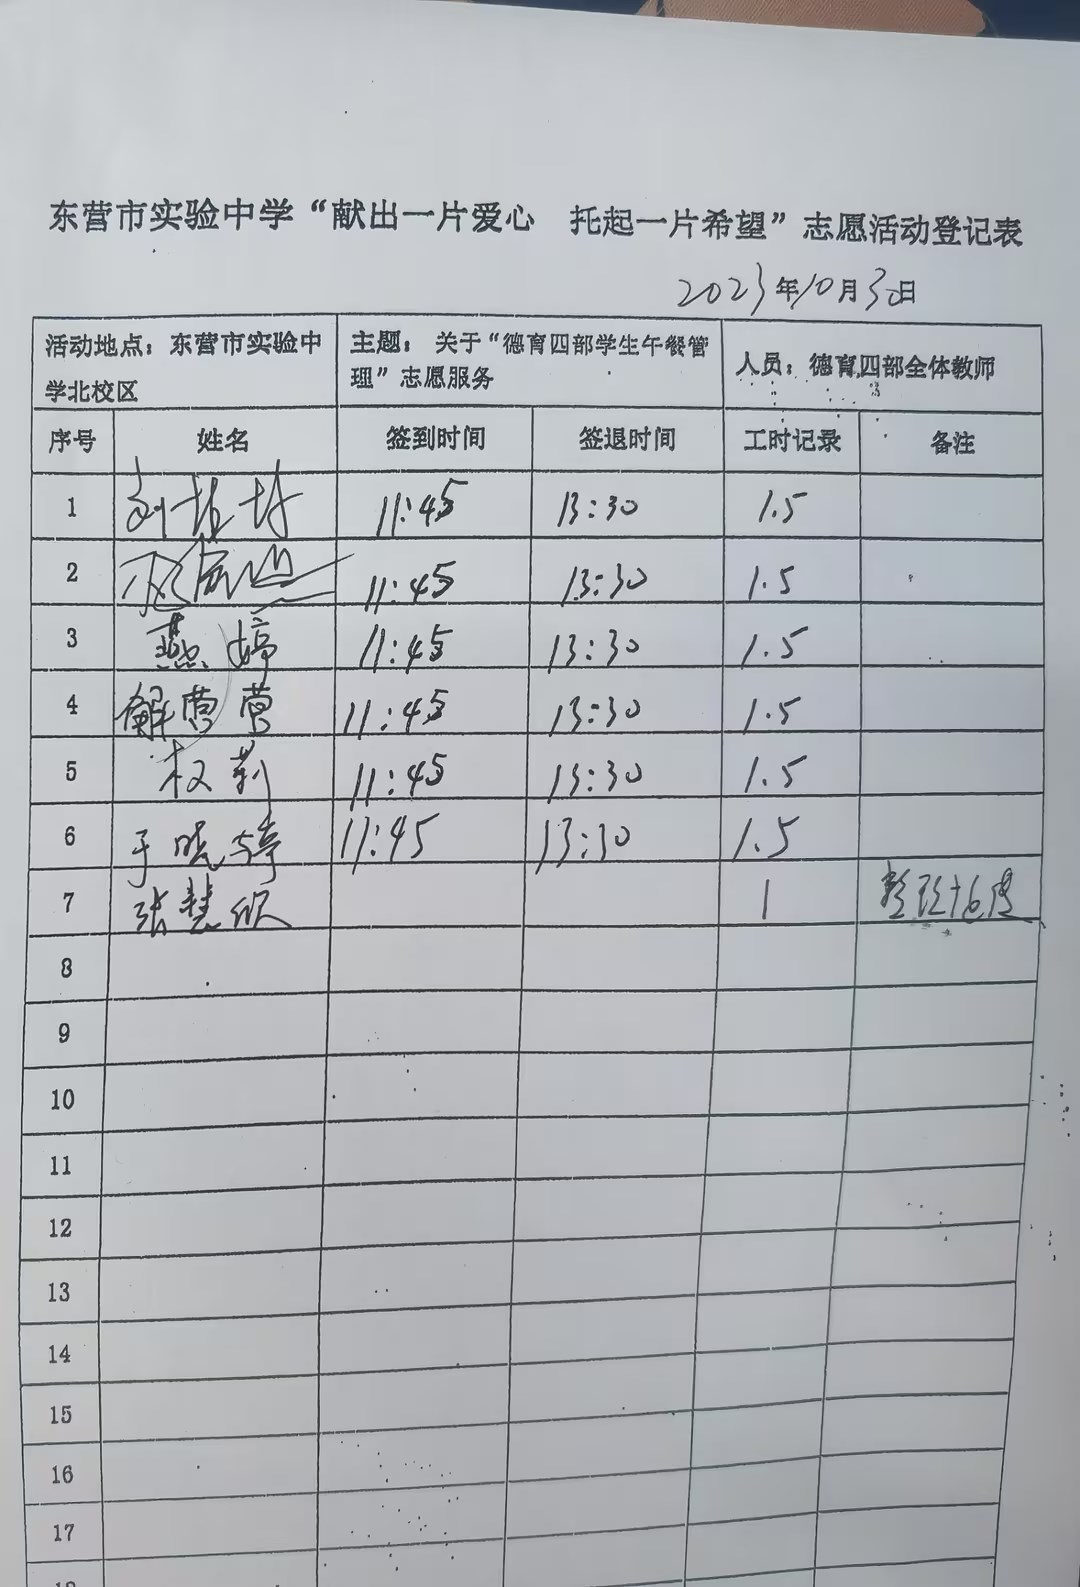 东营市实验中学“献出一片爱心 托起一片希望”志愿活动登记表
2023年10月30日
活动地点：东营市实验中学北校区 主题：关于“德育四部学生午餐管理”志愿服务 人员：德育四部全体教师
序号 姓名 签到时间 签退时间 工时记录 备注
1 刘 11:45 13:30 1.5
2 11:45 13:30 1.5
3 燕婷 11:45 13:30 1.5
4 解莺莺 11:45 13:30 1.5
5 权莉 11:45 13:30 1.5
6 于晓婷 11:45 13:30 1.5
7 张慧欣 1
8
9
10
11
12
13
14
15
16
17
18